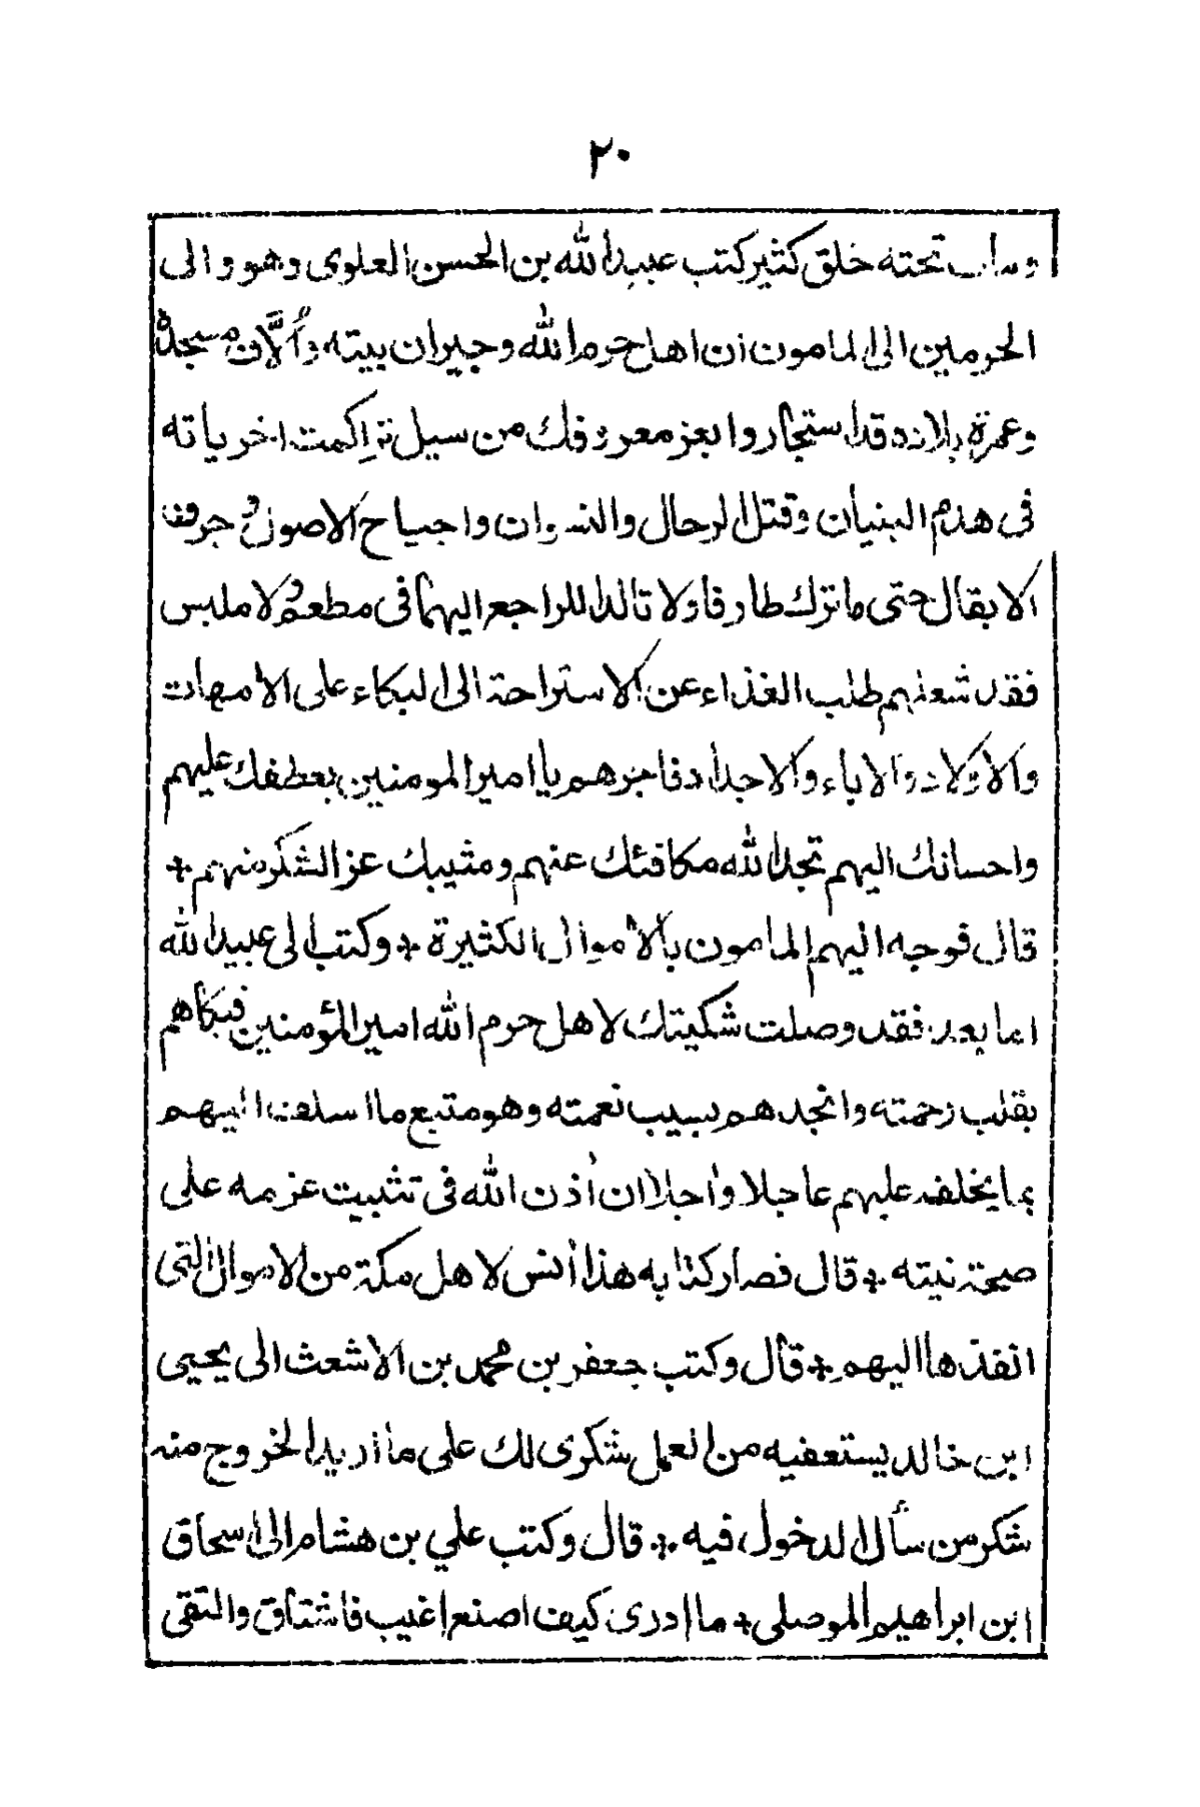 ٢٠
ومات تحته خلق كثير كتب عبيد الله بن الحسن العلوى وهو والى
الحرمين الى المامون ان اهل حرم الله وجيران بيته و مسجده
وعمرة بلاده قد استجاروا بعز معروفك من سيل تراكمت اخرياته
فى هدم البنيان وقتل الرجال والنسوان واجتياح الاصول و جرف
الابقال حتى ما ترك طارفا ولا تالدا للراجع اليهما فى مطعم ولا ملبس
فقد شغلهم طلب الغذاء عن الاستراحة الى البكاء على الامهات
والاولاد والاباء والاجداد فاجرهم يا امير المومنين بعطفك عليهم
واحسانك اليهم تجد الله مكافئك عنهم ومثيبك عز الشكر منهم +
قال فوجه اليهم المامون بالاموال الكثيرة + وكتب الى عبيد الله
اما بعد فقد وصلت شكيتك لاهل حرم الله امير المؤمنين فبكاهم
بقلب رحمته وانجدهم بسيب نعمته وهو متبع ما اسلف اليهم
بما يخلفه عليهم عاجلا واجلا ان أذن الله فى تثبيت عزمه على
صحة نيته + قال فصار كتابه هذا أنس لاهل مكة من الاموال التى
انفذها اليهم + قال وكتب جعفر بن محمد بن الاشعث الى يحيى
ابن خالد يستعفيه من العمل شكرى لك على ما اريد الخروج منه
شكر من سأل الدخول فيه + قال وكتب علي بن هشام الى اسحاق
ابن ابراهيم الموصلى + ما ادرى كيف اصنع اغيب فاشتاق والتقى